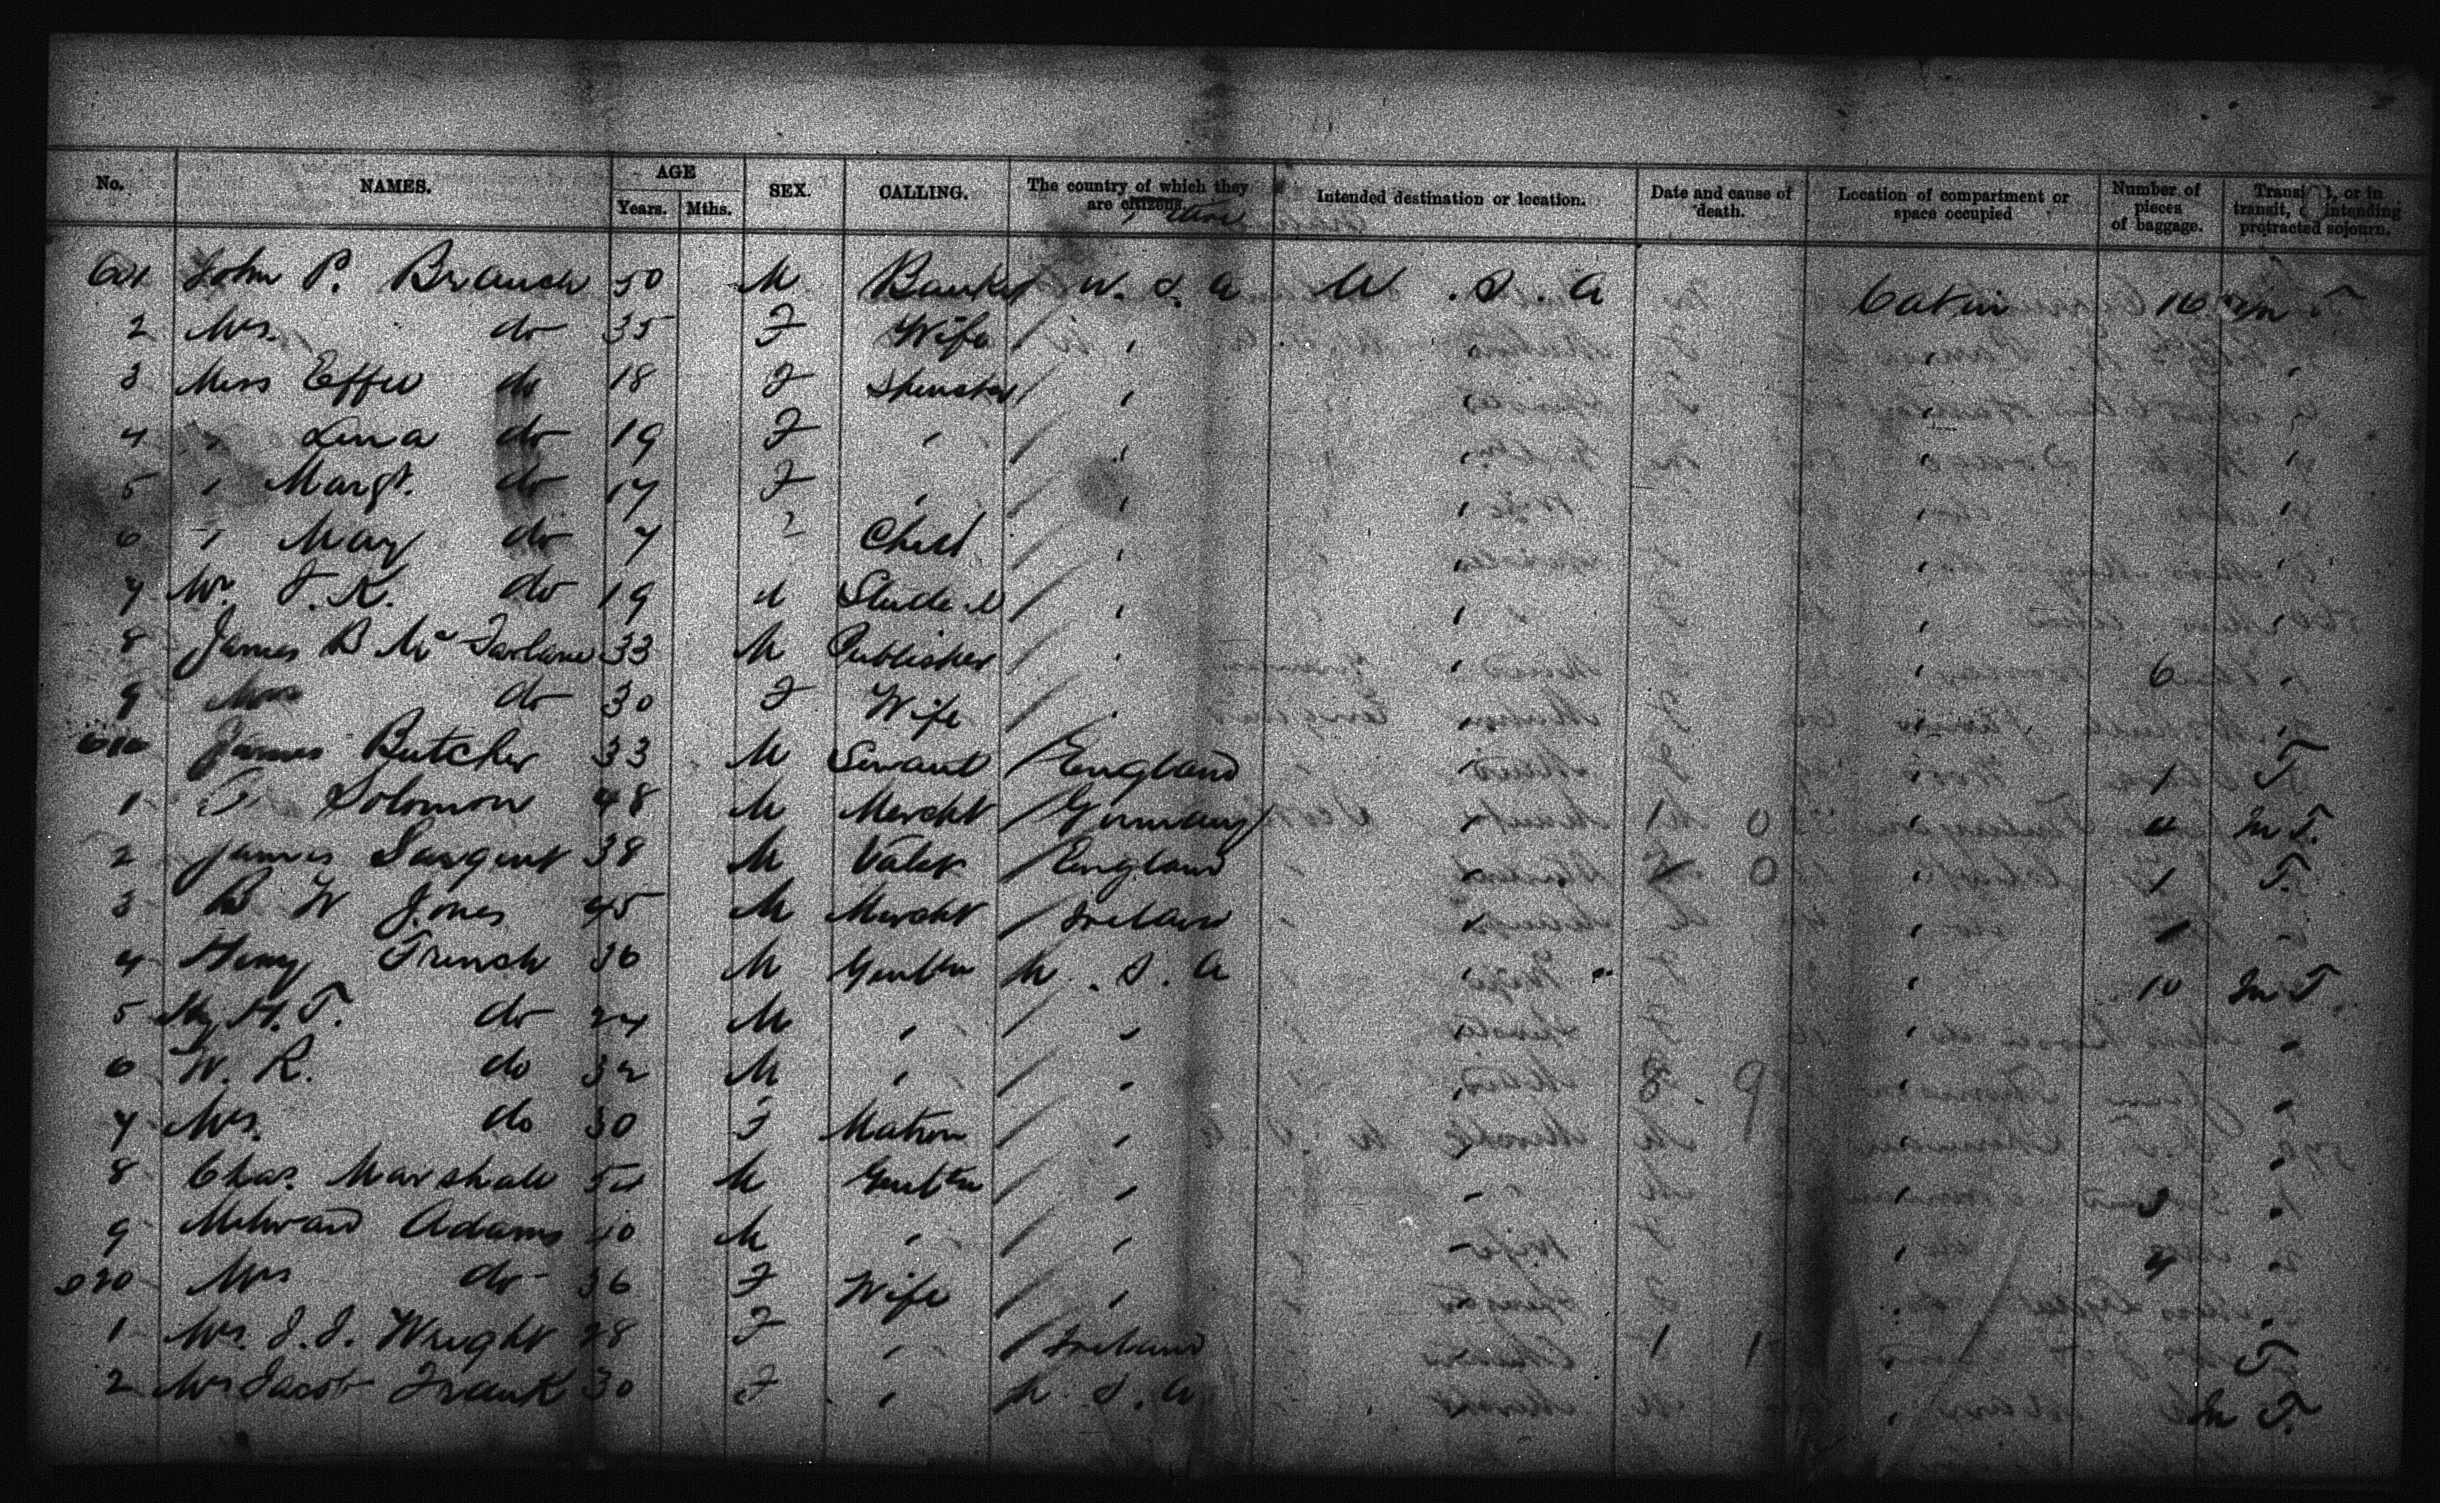 No. NAMES. AGE Years. Mths. SEX. CALLING. The country of which they are citizens. Intended destination or location. Date and cause of death. Location of compartment or space occupied Number of pieces of baggage. transit, or in transit, intending protracted sojourn.
601 John P. Branch 50 M Banker U. S. A U. S. A Cabin 16 In T.
2 Mrs. do 35 F Wife / " " " "
3 Miss Effie do 18 F Spinster / " " " "
4 " Lena do 19 F " / " " " "
5 " Margt. do 17 F " / " " " "
6 " May do 7 Child / " " " "
7 Mr. J. K. do 19 M Student / " " " "
8 James B McFarlane 33 M Publisher / " " " 6 "
9 Mrs do 30 F Wife / " " " "
610 James Butcher 33 M Servant / England " " 1 T
1 Solomon 48 M Mercht / Germany " " 4 In T.
2 James Sargent 38 M Valet / England " " 1 T.
3 B W Jones 45 M Mercht / Ireland " " 1 "
4 Henry French 36 M Gentln U. S. A " " 10 In T.
5 H. T. do 24 M " / " " " "
6 W. R. do 32 M " / " " " "
7 Mrs. do 30 F Matron / " " " "
8 Chas. Marshall 54 M Gentln / " " " 3 "
9 Milward Adams 40 M " / " " " 4 "
620 Mrs do 36 F Wife / " " " "
1 Mrs. J. J. Wright 28 F " / Ireland " T
2 Mrs Jacob Frank 30 F " U. S. A " In T.